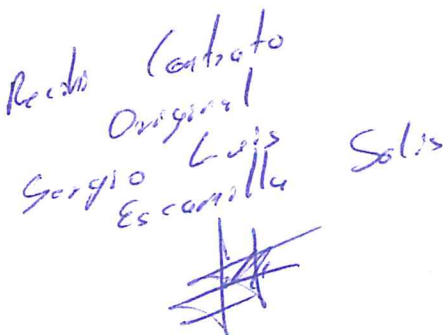 Recibi Contrato
Original
Sergio Luis Solis
Escamilla